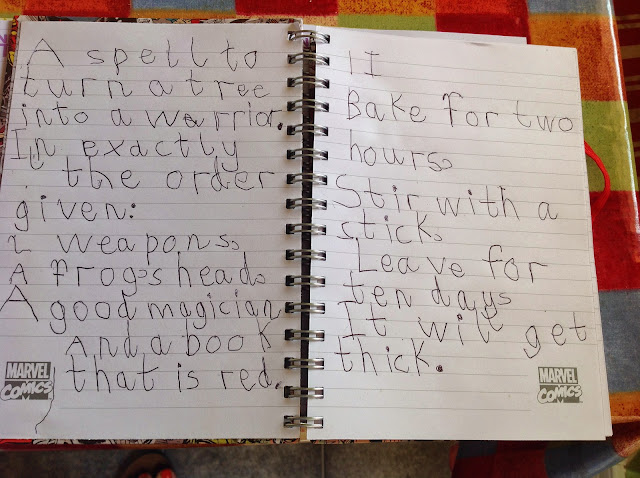 A spell to
turn a tree
into a warrior.
In exactly
the order
given:
2 weapons.
A frog's head.
A good magician
And a book
that is red.
MARVEL
COMICS
1 I
Bake for two
hours.
Stir with a
stick.
Leave for
ten days
It will get
thick.
MARVEL
COMICS